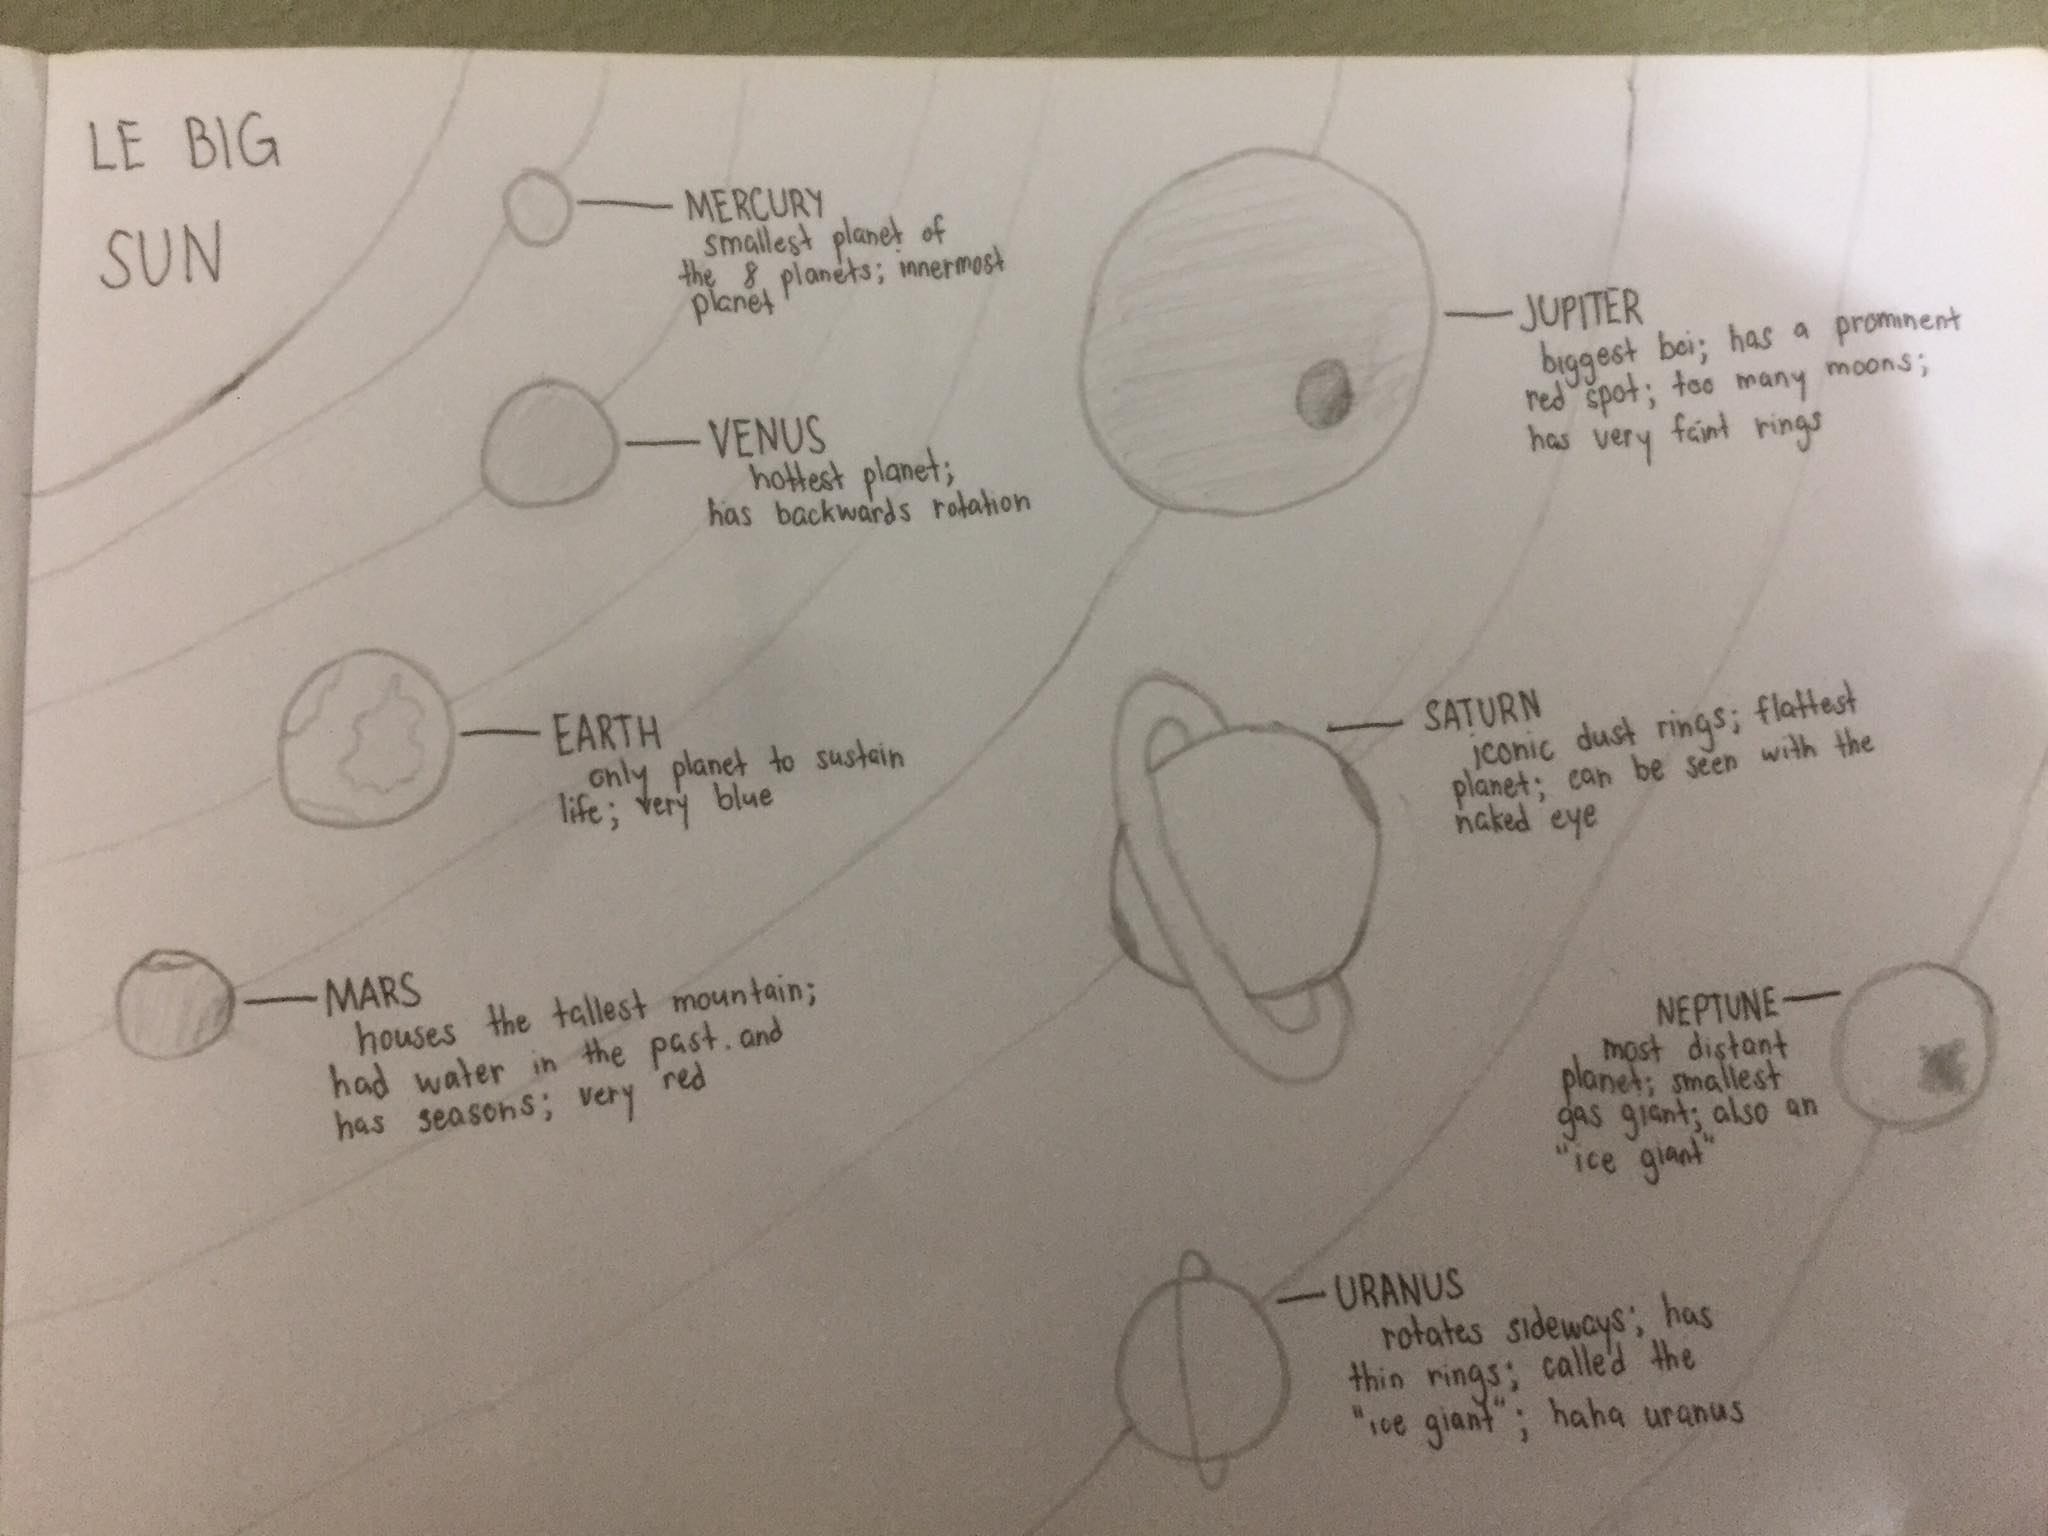 LE BIG
SUN
MERCURY
smallest planet of
the 8 planets; innermost
planet
VENUS
hottest planet;
has backwards rotation
EARTH
only planet to sustain
life; very blue
MARS
houses the tallest mountain;
had water in the past. and
has seasons; very red
JUPITER
biggest boi; has a prominent
red spot; too many moons;
has very faint rings
SATURN
iconic dust rings; flattest
planet; can be seen with the
naked eye
NEPTUNE
most distant
planet; smallest
gas giant; also an
"ice giant"
URANUS
rotates sideways; has
thin rings; called the
"ice giant"; haha uranus